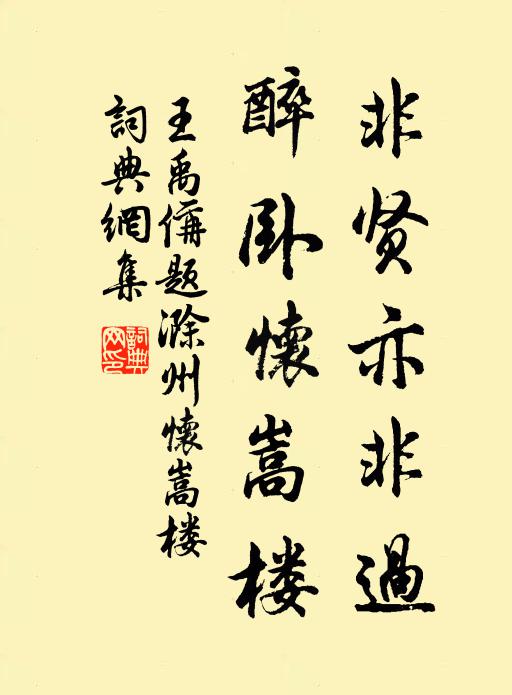 非贤亦非過
醉卧懷嵩楼
王禹偁题滁州懷嵩楼
詞典網集
詞典网印